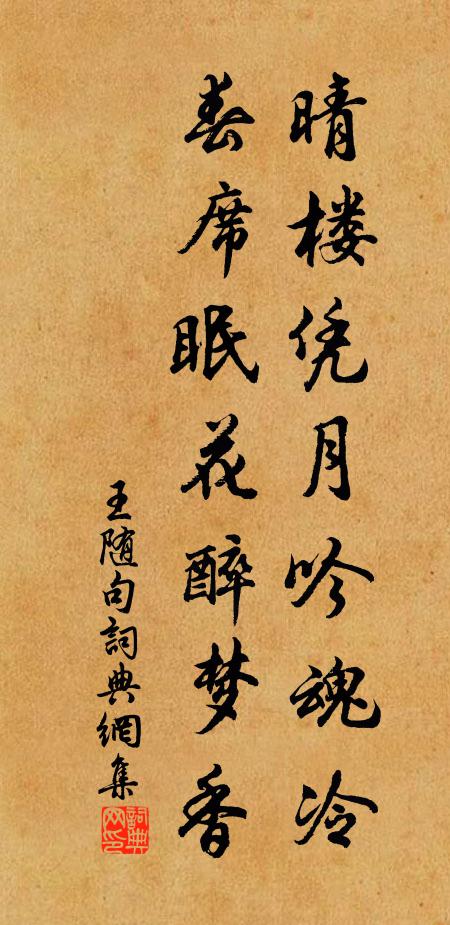 晴楼凭月吟魂冷
春席眠花醉梦香
王随句詞典網集
詞典网印